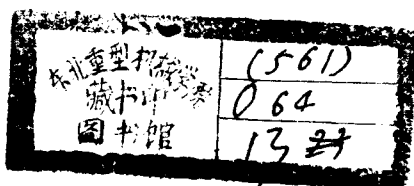 东北重型机械学院
藏书印
图书馆
(561)
O64
13